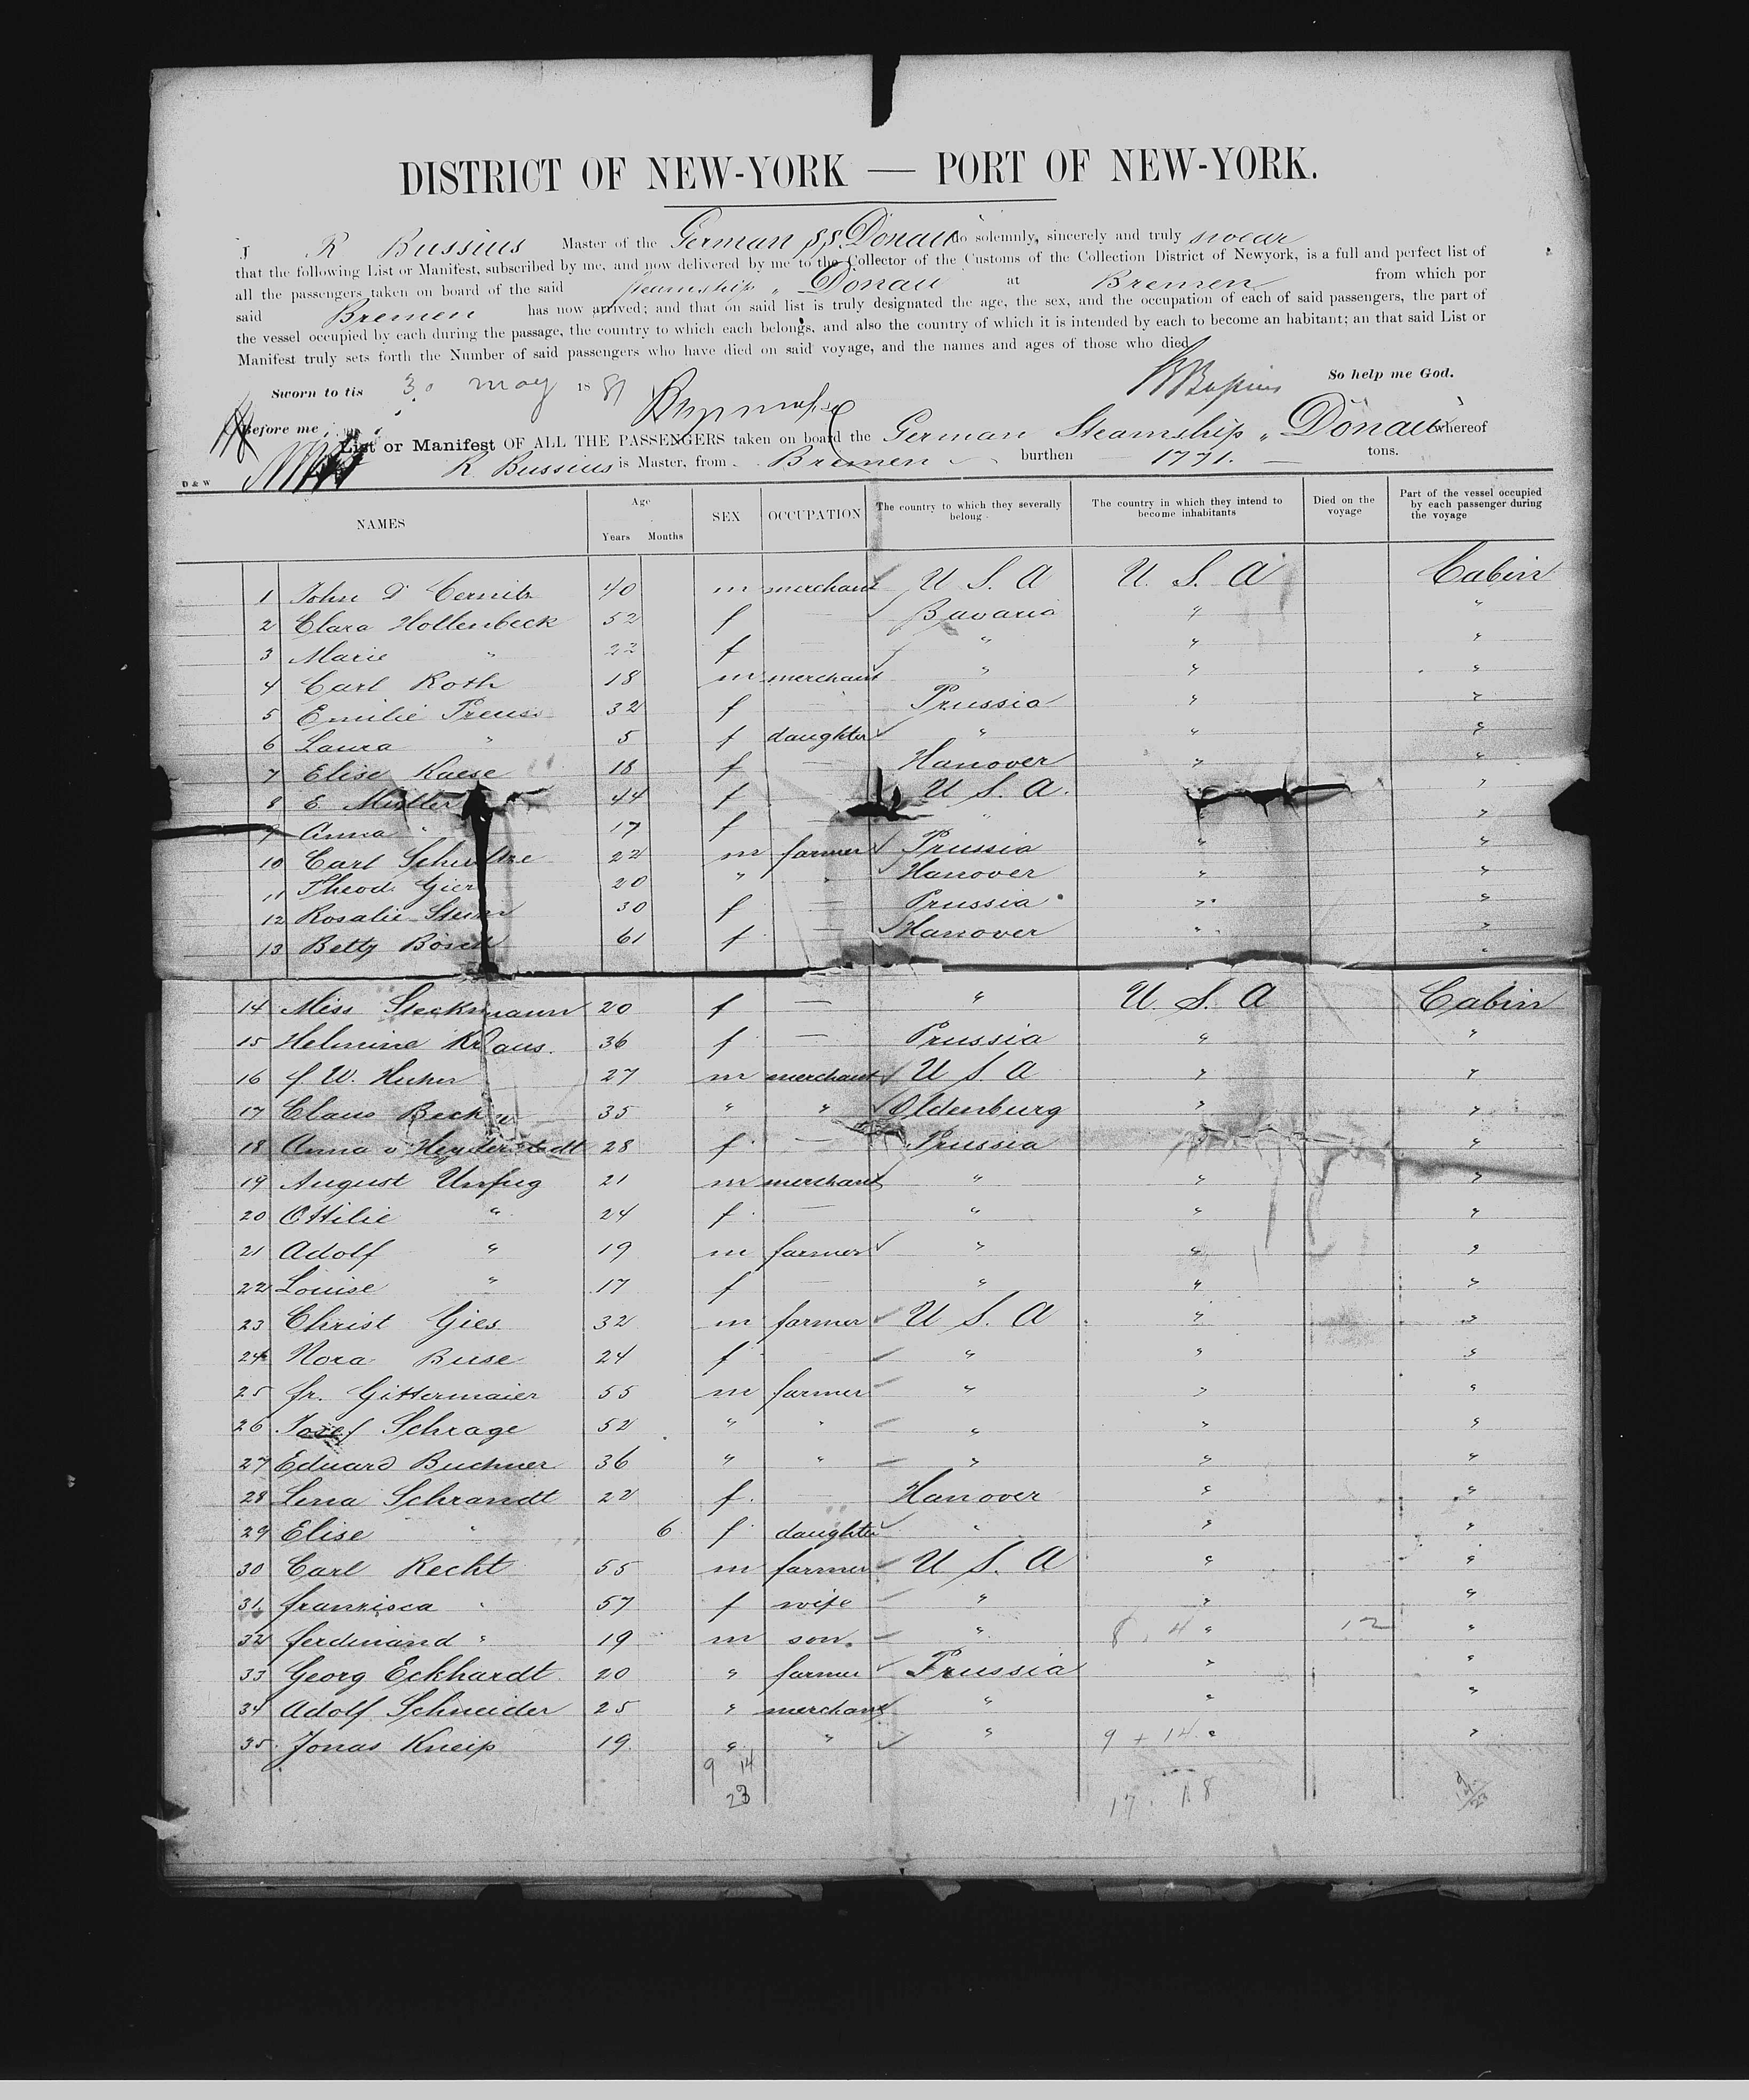 DISTRICT OF NEW-YORK — PORT OF NEW-YORK.
I R Bussius Master of the German SS. Donau do solemnly, sincerely and truly swear
that the following List or Manifest, subscribed by me, and now delivered by me to the Collector of the Customs of the Collection District of Newyork, is a full and perfect list of
all the passengers taken on board of the said steamship „ Donau at Bremen from which por
said Bremen has now arrived; and that on said list is truly designated the age, the sex, and the occupation of each of said passengers, the part of
the vessel occupied by each during the passage, the country to which each belongs, and also the country of which it is intended by each to become an habitant; an that said List or
Manifest truly sets forth the Number of said passengers who have died on said voyage, and the names and ages of those who died
Sworn to tis 30 may 1881 So help me God.
Before me
List or Manifest OF ALL THE PASSENGERS taken on board the German Steamship „ Donau" whereof
R Bussius is Master, from Bremen burthen 1771. tons.
D & W
NAMES Age Years Months SEX OCCUPATION The country to which they severally belong The country in which they intend to become inhabitants Died on the voyage Part of the vessel occupied by each passenger during the voyage
1 John D 40 m merchant U S. A U. S. A Cabin
2 Clara Hollenbeck 52 f — Bavaria " "
3 Marie " 22 f " " "
4 Carl Roth 18 m merchant " " "
5 Emilie Preuss 32 f — Prussia " "
6 Laura " 5 f daughter " " "
7 Elise Kaese 18 f — Hanover " "
8 E Müller 44 f U S. A. " "
9 Anna " 17 f " " "
10 Carl Schultze 22 m farmer Prussia " "
11 Theod. Gier 20 " " Hanover " "
12 Rosalie Stein 30 f — Prussia " "
13 Betty 61 f — Hanover " "
14 Miss Steckmann 20 f — " U. S. A Cabin
15 Helmine Kraus. 36 f — Prussia " "
16 F. W. 27 m merchant U S. A " "
17 Claus Becker 35 " " Oldenburg " "
18 Anna v Heyderstadt 28 f — Prussia " "
19 August Unfug 21 m merchant " " "
20 Ottilie " 24 f — " " "
21 Adolf " 19 m farmer " " "
22 Louise " 17 f — " " "
23 Christ Gies 32 m farmer U S. A " "
24 Nora Buse 24 f " " "
25 Fr. Gittermaier 55 m farmer " " "
26 Josef Schrage 52 " " " " "
27 Eduard Buchner 36 " " " " "
28 Lena Schrandt 22 f. — Hanover " "
29 Elise " 6 f daughter " " "
30 Carl Recht 55 m farmer U. S. A " "
31. Franzisca " 57 f wife " " "
32 Ferdinand " 19 m son. " 8. 4 " 12 "
33 Georg Eckhardt. 20 " farmer Prussia " "
34 Adolf Schneider 25 " merchant " " "
35. Jonas Kneip 19. " " " 9 + 14 " "
9 14
23
17. 18